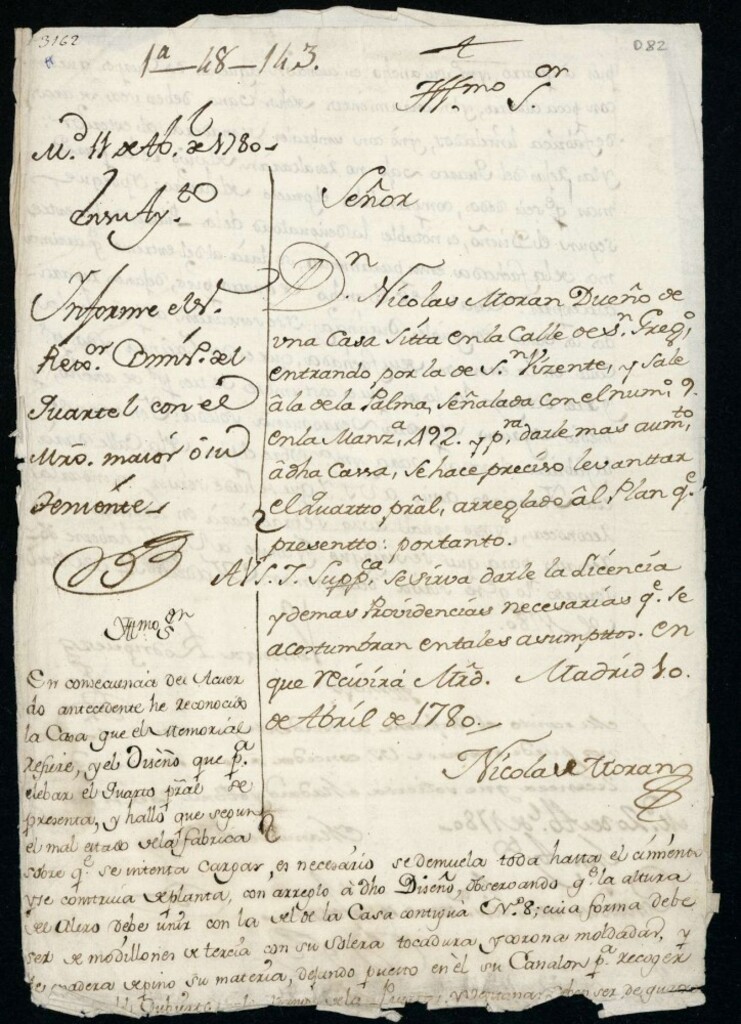 3162
D82
1ª-48-143.
Yll.mo S.or
M.d 11 de Ab.l de 1780-
En su Ay.to
Informe el S.r
Rexo.or Comis.o del
Quartel con el
Mro. maior ô su
Theniente
Señor
D.n Nicolas Moran Dueño de
vna Casa Sitta en la Calle de S.n Greg.o
entrando por la de S.n Vizente, y Sale
â la de la Palma, Señalada con el num.o 9.
en la Manz.a 492. y p.ra darle mas aum.to
â dha Cassa, Se hace preciso levanttar
el quartto pral, arreglado âl Plan q.e
presentto: por tanto.
A V.S.I. Supp.ca, se sirva darle la Licencia
y demas Providencias necesarias q.e se
acostumbran en tales asumpttos. en
que recivirá Mrd. Madrid 10.
de Abríl de 1780.
Nicolas Moran
Yll.mo S.or
En consecuencia del Acuer
do antecedente he reconocido
la Casa que el Memorial
refiere, y el Diseño que p.a
elebar el quarto pral se
presenta, y hallo que segun
el mal estado de la fabrica
sobre q.e se intenta cargar, es necesario se demuela toda hasta el cimento
y se construia de planta, con arreglo â dho Diseño, observando q.e la altura
del Alero debe unir con la del de la Casa contigua N.o 8; cuia forma debe
ser de modillones de tercia con su solera tocadura y corona moldadas, y
de madera de pino su materia, dejando puesto en êl su Canalon p.a recoger